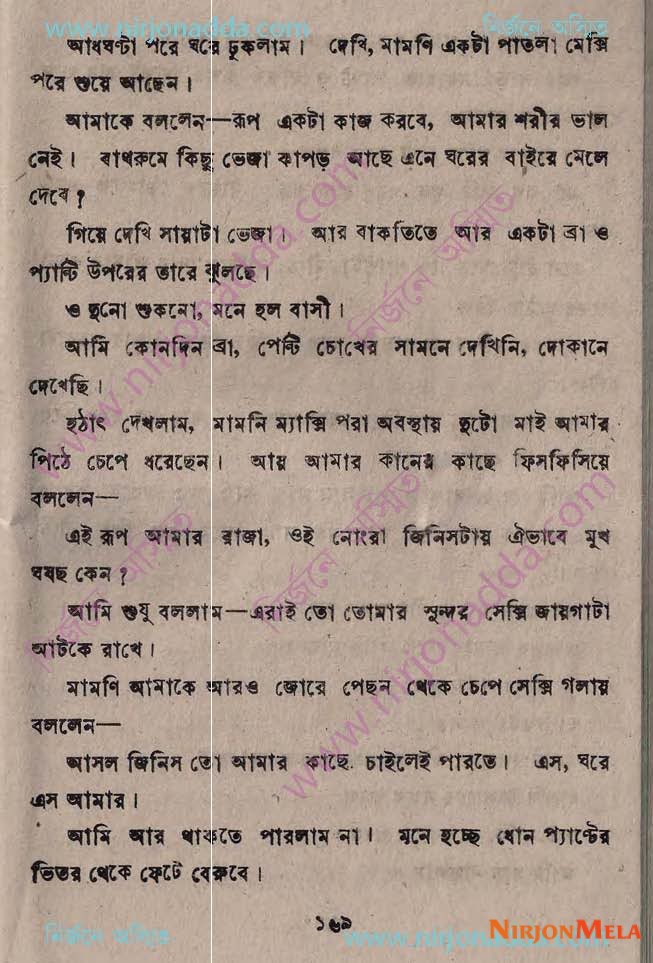 www.nirjonadda.com
নির্জনে অস্মিতে
আধঘণ্টা পরে ঘরে ঢুকলাম। দেখি, মামণি একটা পাতলা মেক্সি
পরে শুয়ে আছেন।
আমাকে বললেন—রূপ একটা কাজ করবে, আমার শরীর ভাল
নেই। বাথরুমে কিছু ভেজা কাপড় আছে এনে ঘরের বাইরে মেলে
দেবে?
গিয়ে দেখি সায়াটা ভেজা। আর বাকতিতে আর একটা ব্রা ও
প্যান্টি উপরের তারে ঝুলছে।
ও দুনো শুকনো, মনে হল বাসী।
আমি কোনদিন ব্রা, পেন্টি চোখের সামনে দেখিনি, দোকানে
দেখেছি।
হঠাৎ দেখলাম, মামনি ম্যাক্সি পরা অবস্থায় দুটো মাই আমার
পিঠে চেপে ধরেছেন। আয় আমার কানের কাছে ফিসফিসিয়ে
বললেন—
এই রূপ আমার রাজা, ওই নোংরা জিনিসটায় ঐভাবে মুখ
ঘষছ কেন?
আমি শুধু বললাম—এরাই তো তোমার সুন্দর সেক্সি জায়গাটা
আটকে রাখে।
মামণি আমাকে আরও জোরে পেছন থেকে চেপে সেক্সি গলায়
বললেন—
আসল জিনিস তো আমার কাছে চাইলেই পারতে। এস, ঘরে
এস আমার।
আমি আর থাকতে পারলাম না। মনে হচ্ছে ধোন প্যান্টের
ভিতর থেকে ফেটে বেরুবে।
১৬৯
নির্জনে অস্মিতে
www.nirjonadda.com
NIRJONMELA